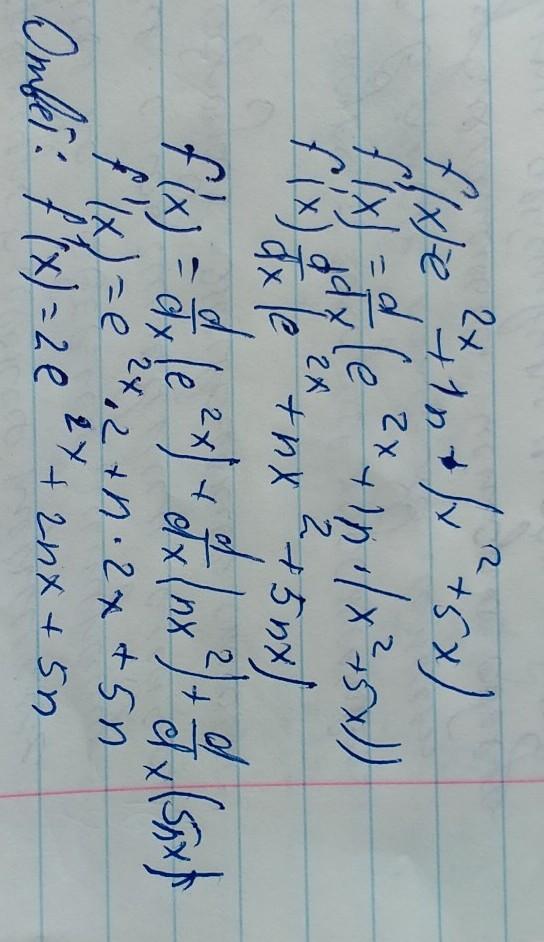 f(x)=e^2x + 1n · (x^2 + 5x)
f'(x) = d/dx (e^2x + 1n · (x^2 + 5x))
f'(x) d/dx (e^2x + nx^2 + 5nx)
f'(x) = d/dx (e^2x) + d/dx (nx^2) + d/dx (5nx)
f'(x) = e^2x · 2 + n · 2x + 5n
Ответ: f'(x) = 2e^2x + 2nx + 5n